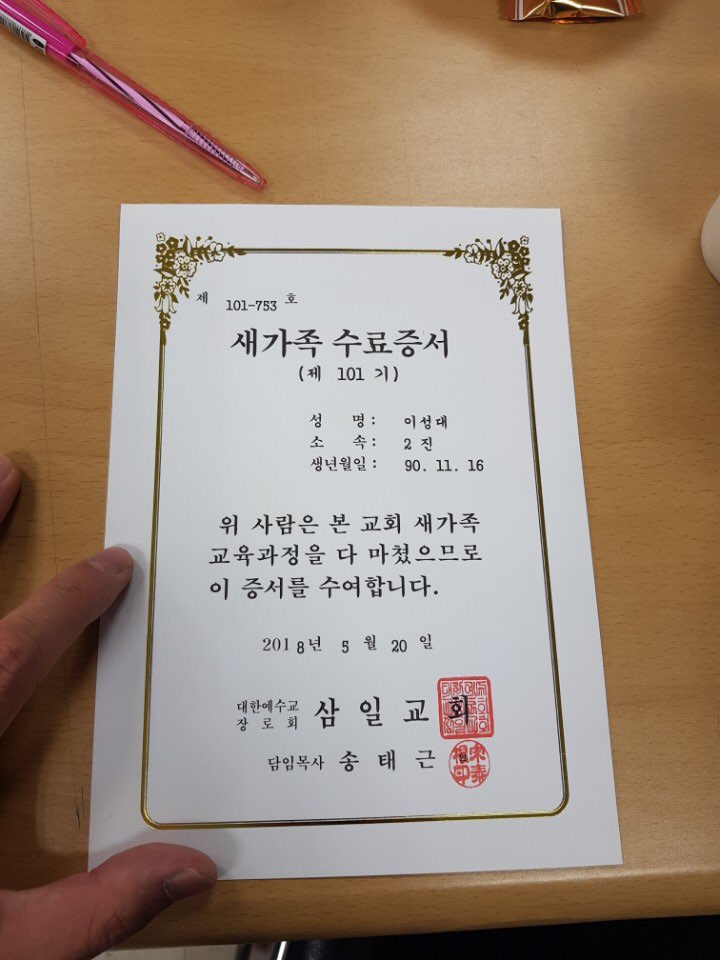 제 101-753 호
새가족 수료증서
(제 101 기)
성 명 : 이성대
소 속 : 2 진
생년월일 : 90. 11. 16
위 사람은 본 교회 새가족
교육과정을 다 마쳤으므로
이 증서를 수여합니다.
2018년 5 월 20 일
대한예수교
장 로 회 삼 일 교 회
담임목사 송 태 근